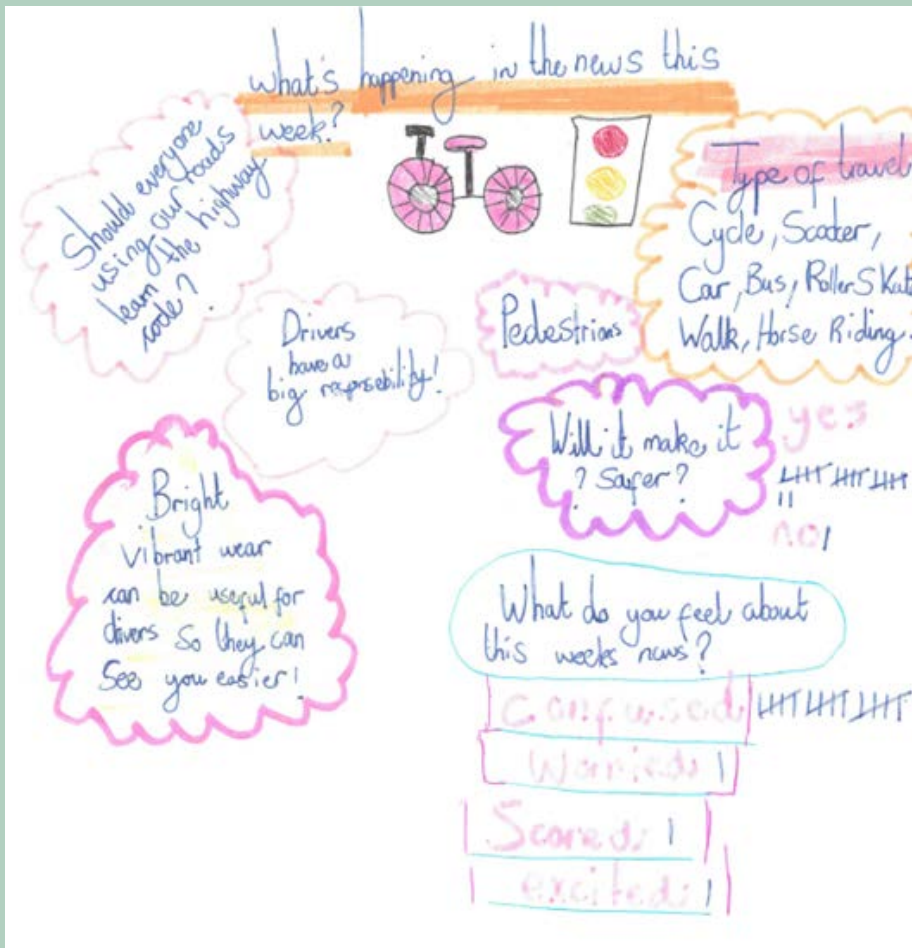 what's happening in the news this
week?
Should everyone
using our roads
learn the highway
code?
Type of travel
Cycle, Scooter,
Car, Bus, Roller Skat
Walk, Horse Riding.
Drivers
have a
big responsebility!
Pedestrians
Will it make it
? Safer?
yes
no
Bright
vibrant wear
can be useful for
drivers so they can
See you easier!
What do you feel about
this weeks news?
confused:
Worried:
Scared:
excited: